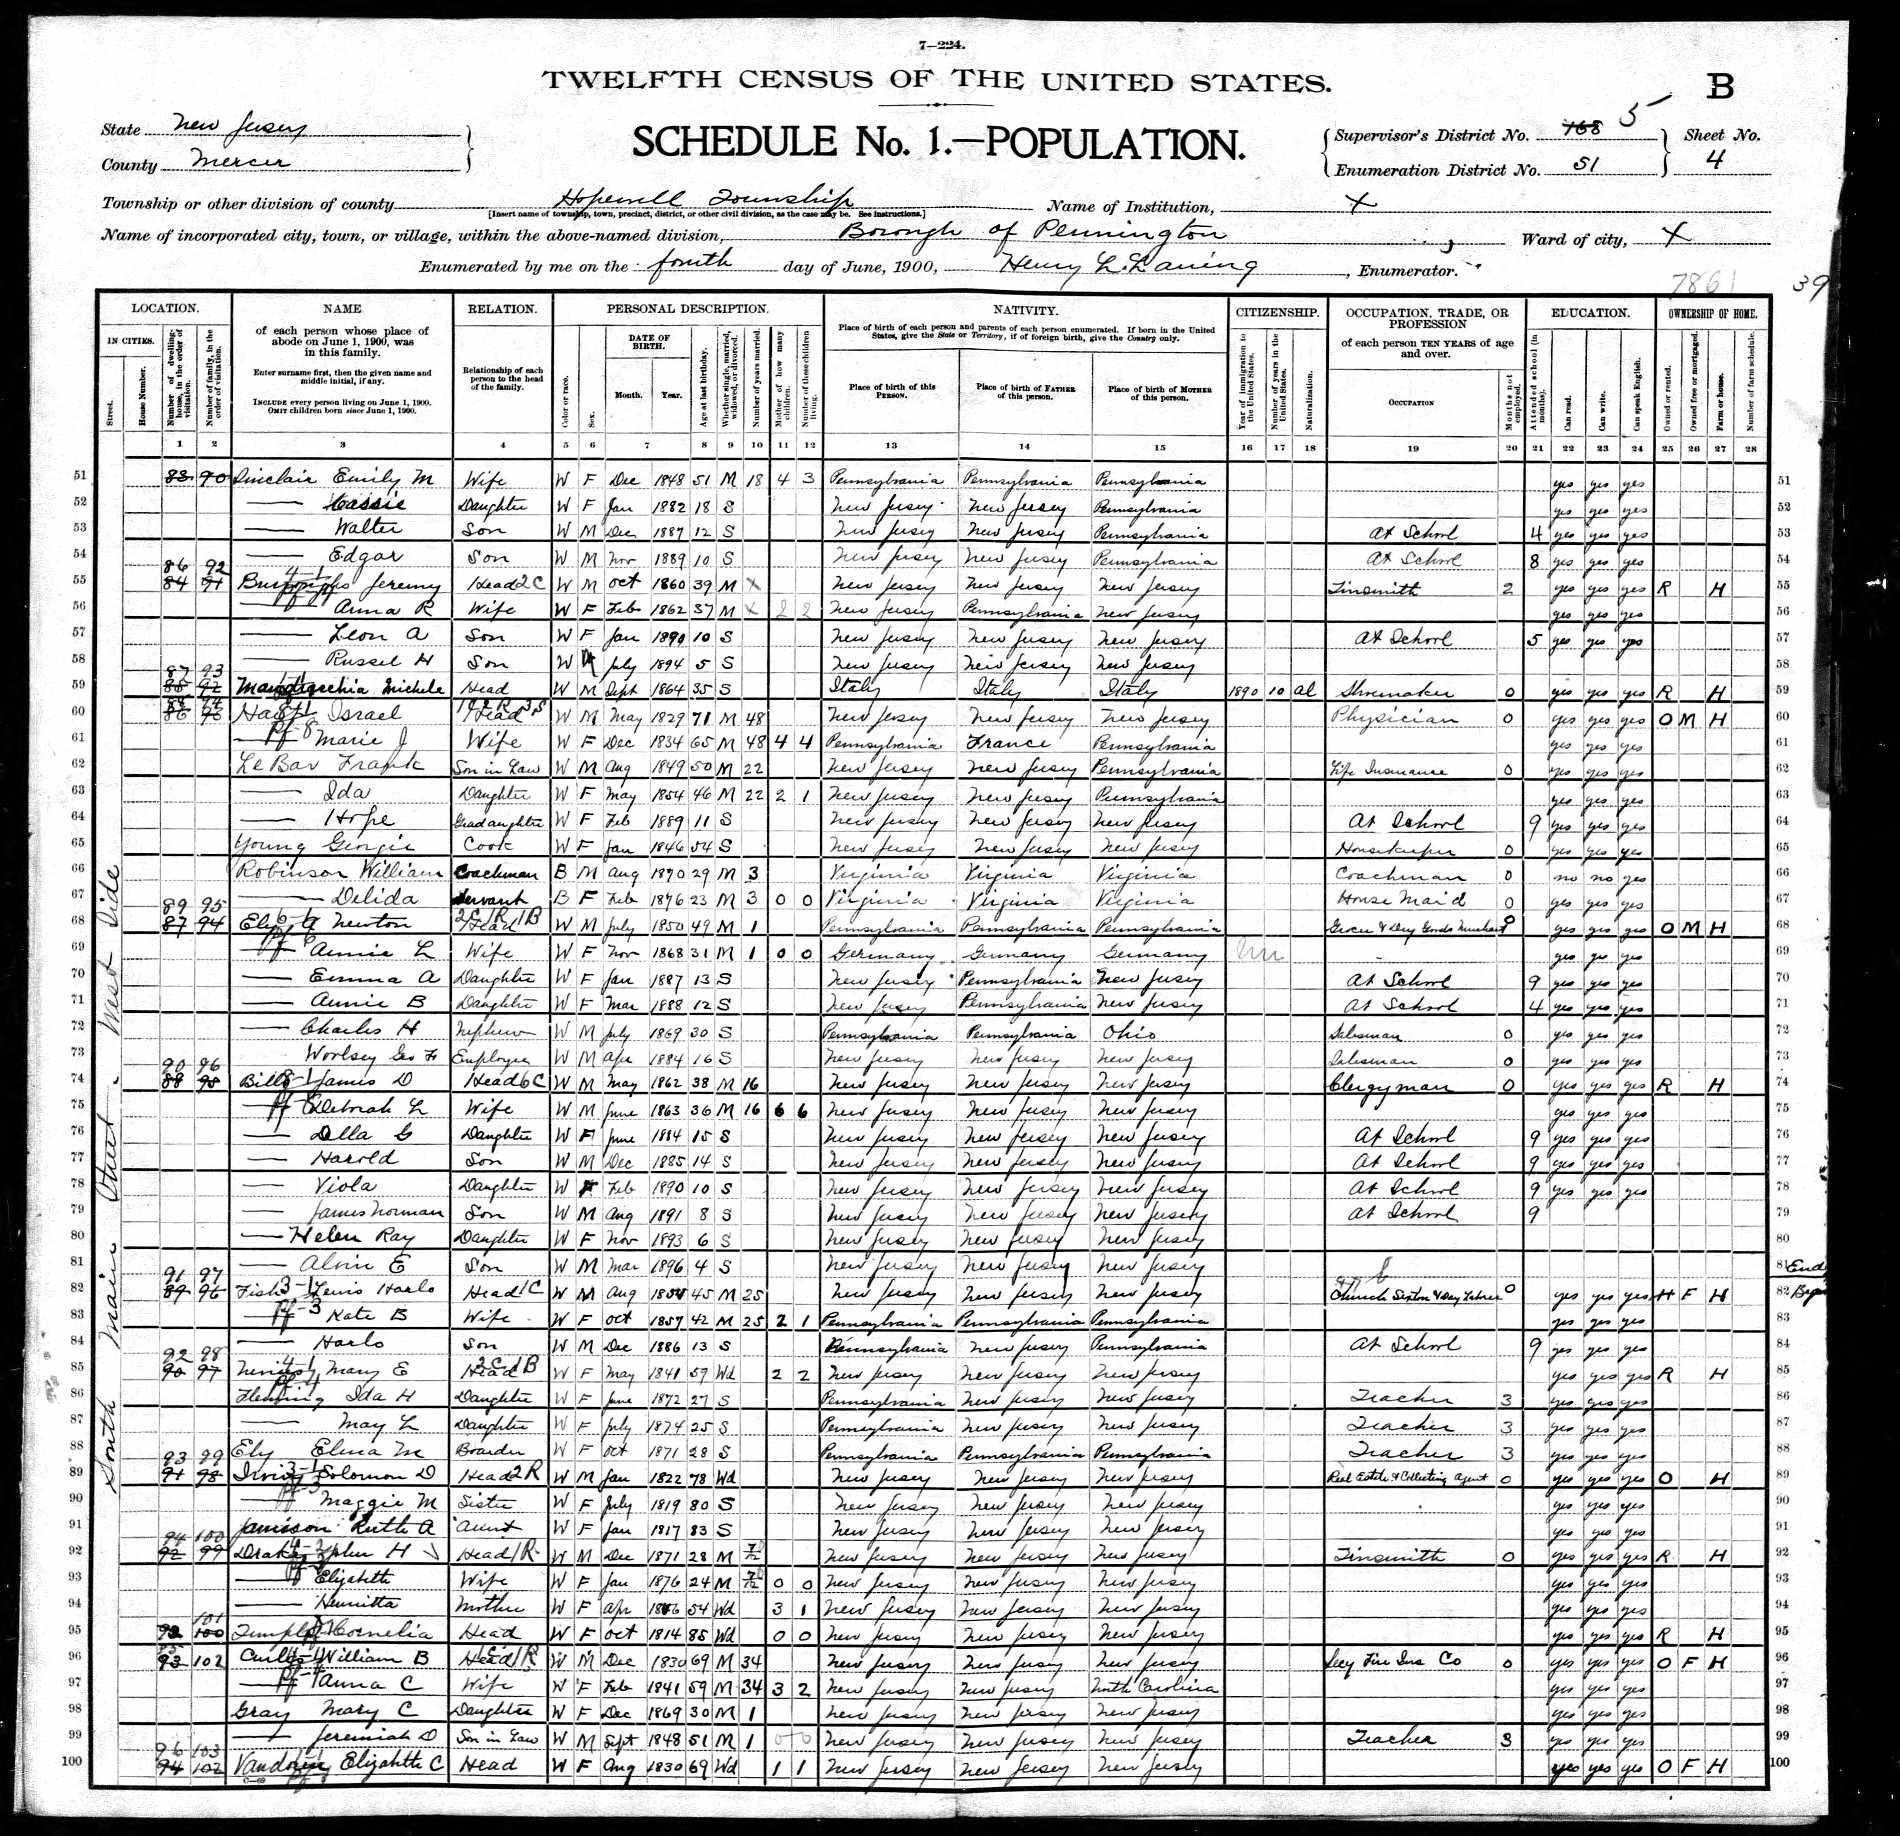 7—224.
TWELFTH CENSUS OF THE UNITED STATES.
B
State New Jersey
County Mercer
SCHEDULE No. 1.—POPULATION.
Supervisor's District No. 168 5
Enumeration District No. 51
Sheet No. 4
Township or other division of county Hopewell Township
[Insert name of township, town, precinct, district, or other civil division, as the case may be. See instructions.]
Name of Institution, X
Name of incorporated city, town, or village, within the above-named division, Borough of Pennington
Ward of city, X
Enumerated by me on the fourth day of June, 1900, Henry L. Laning, Enumerator.
7861 39
LOCATION. NAME RELATION. PERSONAL DESCRIPTION. NATIVITY. CITIZENSHIP. OCCUPATION, TRADE, OR PROFESSION EDUCATION. OWNERSHIP OF HOME.
IN CITIES. Street. House Number. Number of dwelling-house, in the order of visitation. Number of family, in the order of visitation.
of each person whose place of abode on June 1, 1900, was in this family.
Enter surname first, then the given name and middle initial, if any.
INCLUDE every person living on June 1, 1900. OMIT children born since June 1, 1900.
Relationship of each person to the head of the family.
Color or race. Sex. DATE OF BIRTH. Month. Year. Age at last birthday. Whether single, married, widowed, or divorced. Number of years married. Mother of how many children. Number of these children living.
Place of birth of each person and parents of each person enumerated. If born in the United States, give the State or Territory; if of foreign birth, give the Country only.
Place of birth of this PERSON. Place of birth of FATHER of this person. Place of birth of MOTHER of this person.
Year of immigration to the United States. Number of years in the United States. Naturalization.
of each person TEN YEARS of age and over.
OCCUPATION Months not employed.
Attended school (in months). Can read. Can write. Can speak English.
Owned or rented. Owned free or mortgaged. Farm or house. Number of farm schedule.
1 2 3 4 5 6 7 8 9 10 11 12 13 14 15 16 17 18 19 20 21 22 23 24 25 26 27 28
South Main Street West Side
51 83 90 Sinclair Emily M Wife W F Dec 1848 51 M 18 4 3 Pennsylvania Pennsylvania Pennsylvania yes yes yes 51
52 Cassie Daughter W F Jan 1882 18 S New Jersey New Jersey Pennsylvania yes yes yes 52
53 Walter Son W M Dec 1887 12 S New Jersey New Jersey Pennsylvania At School 4 yes yes yes 53
54 Edgar Son W M Nov 1889 10 S New Jersey New Jersey Pennsylvania At School 8 yes yes yes 54
86 92
55 84 91 Burroughs Jeremy Head 2C W M Oct 1860 39 M X New Jersey New Jersey New Jersey Tinsmith 2 yes yes yes R H 55
56 Anna R Wife W F Feb 1862 37 M X 2 2 New Jersey Pennsylvania New Jersey yes yes yes 56
57 Leon A Son W F Jan 1890 10 S New Jersey New Jersey New Jersey At School 5 yes yes yes 57
58 Russel H Son W M July 1894 5 S New Jersey New Jersey New Jersey 58
87 93
59 85 92 Michele Head W M Sept 1864 35 S Italy Italy Italy 1890 10 al Shoemaker 0 yes yes yes R H 59
88 94
60 86 93 Israel Head W M May 1829 71 M 48 New Jersey New Jersey New Jersey Physician 0 yes yes yes O M H 60
61 Marie J Wife W F Dec 1834 65 M 48 4 4 Pennsylvania France Pennsylvania yes yes yes 61
62 LeBar Frank Son in Law W M Aug 1849 50 M 22 New Jersey New Jersey Pennsylvania Life Insurance 0 yes yes yes 62
63 Ida Daughter W F May 1854 46 M 22 2 1 New Jersey New Jersey Pennsylvania yes yes yes 63
64 Hope Gradaughter W F Feb 1889 11 S New Jersey New Jersey New Jersey At School 9 yes yes yes 64
65 Young Georgie Cook W F Jan 1846 54 S New Jersey New Jersey New Jersey Housekeeper 0 yes yes yes 65
66 Robinson William Coachman B M Aug 1870 29 M 3 Virginia Virginia Virginia Coachman 0 no no yes 66
67 Delida Servant B F Feb 1876 23 M 3 0 0 Virginia Virginia Virginia House Maid 0 yes yes yes 67
89 95
68 87 94 Ely Newton Head 2C 1R 1B W M July 1850 49 M 1 Pennsylvania Pennsylvania Pennsylvania Grocer & Dry Goods Merchant 0 yes yes yes O M H 68
69 Annie L Wife W F Nov 1868 31 M 1 0 0 Germany Germany Germany Un yes yes yes 69
70 Emma A Daughter W F Jan 1887 13 S New Jersey Pennsylvania New Jersey At School 9 yes yes yes 70
71 Annie B Daughter W F Mar 1888 12 S New Jersey Pennsylvania New Jersey At School 4 yes yes yes 71
72 Charles H Nephew W M July 1869 30 S Pennsylvania Pennsylvania Ohio Salesman 0 yes yes yes 72
73 Woolsey Geo F Employee W M Apr 1884 16 S New Jersey New Jersey New Jersey Salesman 0 yes yes yes 73
90 96
74 88 95 Bills James D Head 6C W M May 1862 38 M 16 New Jersey New Jersey New Jersey Clergyman 0 yes yes yes R H 74
75 Deborah L Wife W M June 1863 36 M 16 6 6 New Jersey New Jersey New Jersey yes yes yes 75
76 Della G Daughter W F June 1884 15 S New Jersey New Jersey New Jersey At School 9 yes yes yes 76
77 Harold Son W M Dec 1885 14 S New Jersey New Jersey New Jersey At School 9 yes yes yes 77
78 Viola Daughter W F Feb 1890 10 S New Jersey New Jersey New Jersey At School 9 yes yes yes 78
79 James Norman Son W M Aug 1891 8 S New Jersey New Jersey New Jersey At School 9 79
80 Helen Ray Daughter W F Nov 1893 6 S New Jersey New Jersey New Jersey 80
81 Alvin E Son W M Mar 1896 4 S New Jersey New Jersey New Jersey 81 End
91 97
82 89 96 Fish Lewis Harlo Head 1C W M Aug 1854 45 M 25 New Jersey New Jersey New Jersey Church Sexton & Day Laborer 0 yes yes yes H F H 82
83 Kate B Wife W F Oct 1857 42 M 25 2 1 Pennsylvania Pennsylvania Pennsylvania yes yes yes 83
84 Harlo Son W M Dec 1886 13 S Pennsylvania New Jersey Pennsylvania At School 9 yes yes yes 84
92 98
85 90 97 Mary E Head 2C 1B W F May 1841 59 Wd 2 2 New Jersey New Jersey New Jersey yes yes yes R H 85
86 Fleming Ida H Daughter W F June 1872 27 S Pennsylvania New Jersey New Jersey Teacher 3 yes yes yes 86
87 May L Daughter W F July 1874 25 S Pennsylvania New Jersey New Jersey Teacher 3 yes yes yes 87
88 Ely Elma M Boarder W F Oct 1871 28 S Pennsylvania Pennsylvania Pennsylvania Teacher 3 yes yes yes 88
93 99
89 91 98 Irving Solomon D Head 2R W M Jan 1822 78 Wd New Jersey New Jersey New Jersey Real Estate & Collecting Agent 0 yes yes yes O H 89
90 Maggie M Sister W F July 1819 80 S New Jersey New Jersey New Jersey yes yes yes 90
91 Jamison Ruth A Aunt W F Jan 1817 83 S New Jersey New Jersey New Jersey yes yes yes 91
94 100
92 92 99 Drake H Head 1R W M Dec 1871 28 M 7/12 New Jersey New Jersey New Jersey Tinsmith 0 yes yes yes R H 92
93 Elizabeth Wife W F Jan 1876 24 M 7/12 0 0 New Jersey New Jersey New Jersey yes yes yes 93
94 Henrietta Mother W F Apr 1846 54 Wd 3 1 New Jersey New Jersey New Jersey yes yes yes 94
101
95 92 100 Temple Cornelia Head W F Oct 1814 85 Wd 0 0 New Jersey New Jersey New Jersey yes yes yes R H 95
95
96 93 102 Curlis William B Head 1R W M Dec 1830 69 M 34 New Jersey New Jersey New Jersey Secy Fire Ins Co 0 yes yes yes O F H 96
97 Anna C Wife W F Feb 1841 59 M 34 3 2 New Jersey New Jersey North Carolina yes yes yes 97
98 Gray Mary C Daughter W F Dec 1869 30 M 1 New Jersey New Jersey New Jersey yes yes yes 98
99 Jeremiah D Son in Law W M Sept 1848 51 M 1 0 0 New Jersey New Jersey New Jersey Teacher 3 yes yes yes 99
96 103
100 94 102 Elizabeth C Head W F Aug 1830 69 Wd 1 1 New Jersey New Jersey New Jersey yes yes yes O F H 100